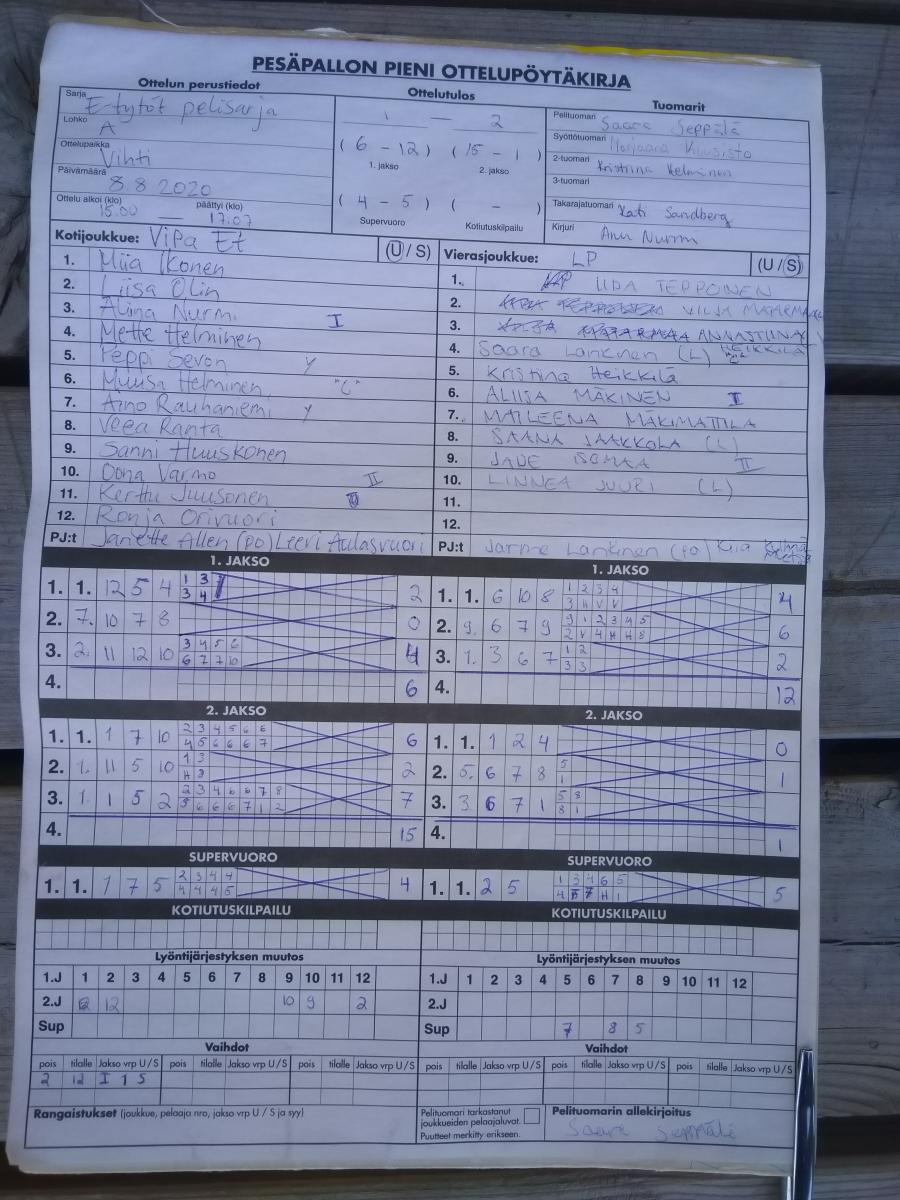 PESÄPALLON PIENI OTTELUPÖYTÄKIRJA
Ottelun perustiedot
Sarja E-tytöt pelisarja
Lohko A
Ottelupaikka Vihti
Päivämäärä 8.8 2020
Ottelu alkoi (klo) päättyi (klo)
15.00 — 17.07
Ottelutulos
1 — 2
( 6 - 12 ) ( 15 - 1 )
1. jakso 2. jakso
( 4 - 5 ) ( - )
Supervuoro Kotiutuskilpailu
Tuomarit
Pelituomari Saara Seppälä
Syöttötuomari Kuusisto
2-tuomari Kristiina Helminen
3-tuomari
Takarajatuomari Kati Sandberg
Kirjuri Anu Nurmi
Kotijoukkue: ViPa Et (U / S)
1. Miia Ikonen
2. Liisa Olin
3. Aliina Nurmi I
4. Mette Helminen
5. Peppi Sevon y
6. Muusa Helminen "C"
7. Aino Rauhaniemi y
8. Veea Ranta
9. Sanni Huuskonen
10. Oona Varmo II
11. Kerttu Juusonen
12. Ronja Orivuori
PJ:t Janette Allen (PO) Leevi Aulasvuori
Vierasjoukkue: LP (U / S)
1. IIDA TEPPONEN
2. VILJA
3. ANNASTIINA
HEIKKILÄ
4. Saara Lankinen (L) "C"
5. Kristiina Heikkilä
6. ALIISA MÄKINEN I
7. MAILEENA MÄKIMATTILA
8. SAANA JAAKKOLA (L)
9. JADE ISOMAA II
10. LINNEA JUURI (L)
11.
12.
PJ:t Jarmo Lankinen (PO) Kiia
1. JAKSO
1. 1. 12 5 4 1 3
3 4 2
2. 7. 10 7 8 0
3. 2. 11 12 10 3 4 5 6
6 7 7 10 4
4. 6
1. JAKSO
1. 1. 6 10 8 1 2 3 4
3 H V V 4
2. 9. 6 7 9 9 1 2 3 4 5
2 V 4 H H 8 6
3. 1. 3 6 7 1 2
3 3 2
4. 12
2. JAKSO
1. 1. 1 7 10 2 3 4 5 6 6
4 5 6 6 6 7 6
2. 1. 11 5 10 1 3
H 3 2
3. 1. 1 5 2 2 3 4 6 6 7 8
5 6 6 6 7 1 2 7
4. 15
2. JAKSO
1. 1. 1 2 4 0
2. 5. 6 7 8 5
1 1
3. 3. 6 7 1 5 8
8 1
4. 1
SUPERVUORO
1. 1. 1 7 5 2 3 4 4
4 4 4 5 4
SUPERVUORO
1. 1. 2 5 1 3 4 6 5
5
KOTIUTUSKILPAILU
KOTIUTUSKILPAILU
Lyöntijärjestyksen muutos
1.J 1 2 3 4 5 6 7 8 9 10 11 12
2.J 12 10 9 2
Sup
Lyöntijärjestyksen muutos
1.J 1 2 3 4 5 6 7 8 9 10 11 12
2.J
Sup 7 8 5
Vaihdot
pois tilalle Jakso vrp U / S pois tilalle Jakso vrp U / S pois tilalle Jakso vrp U / S
2 12 I 1 S
Vaihdot
pois tilalle Jakso vrp U / S pois tilalle Jakso vrp U / S pois tilalle Jakso vrp U / S
Rangaistukset (joukkue, pelaaja nro, jakso vrp U / S ja syy)
Pelituomari tarkastanut
joukkueiden pelaajaluvat.
Puutteet merkitty erikseen.
Pelituomarin allekirjoitus
Saara Seppälä